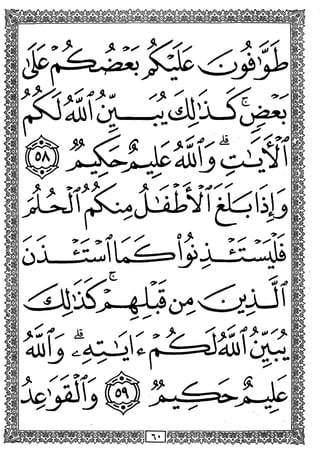 طَوَّٰفُونَ عَلَيْكُم بَعْضُكُمْ عَلَىٰ
بَعْضٍ ۚ كَذَٰلِكَ يُبَيِّنُ ٱللَّهُ لَكُمُ
ٱلْأَيَٰتِ ۗ وَٱللَّهُ عَلِيمٌ حَكِيمٌ ٥٨
وَإِذَا بَلَغَ ٱلْأَطْفَٰلُ مِنكُمُ ٱلْحُلُمَ
فَلْيَسْتَـْٔذِنُوا۟ كَمَا ٱسْتَـْٔذَنَ
ٱلَّذِينَ مِن قَبْلِهِمْ ۚ كَذَٰلِكَ
يُبَيِّنُ ٱللَّهُ لَكُمْ ءَايَٰتِهِۦ ۗ وَٱللَّهُ
عَلِيمٌ حَكِيمٌ ٥٩ وَٱلْقَوَٰعِدُ
٦٠